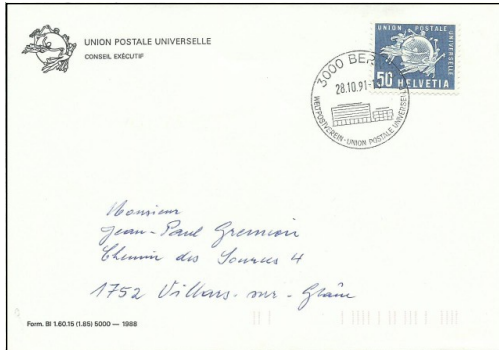 UNION POSTALE UNIVERSELLE
CONSEIL EXÉCUTIF
UNION POSTALE
UNIVERSELLE
50 HELVETIA
3000 BER
28.10.91-1
WELTPOSTVEREIN-UNION POSTALE UNIVERSEL
Monsieur
Jean-Paul Gremion
Chemin des Sources 4
1752 Villars-sur-Glâne
Form. BI 1.60.15 (1.85) 5000 — 1988